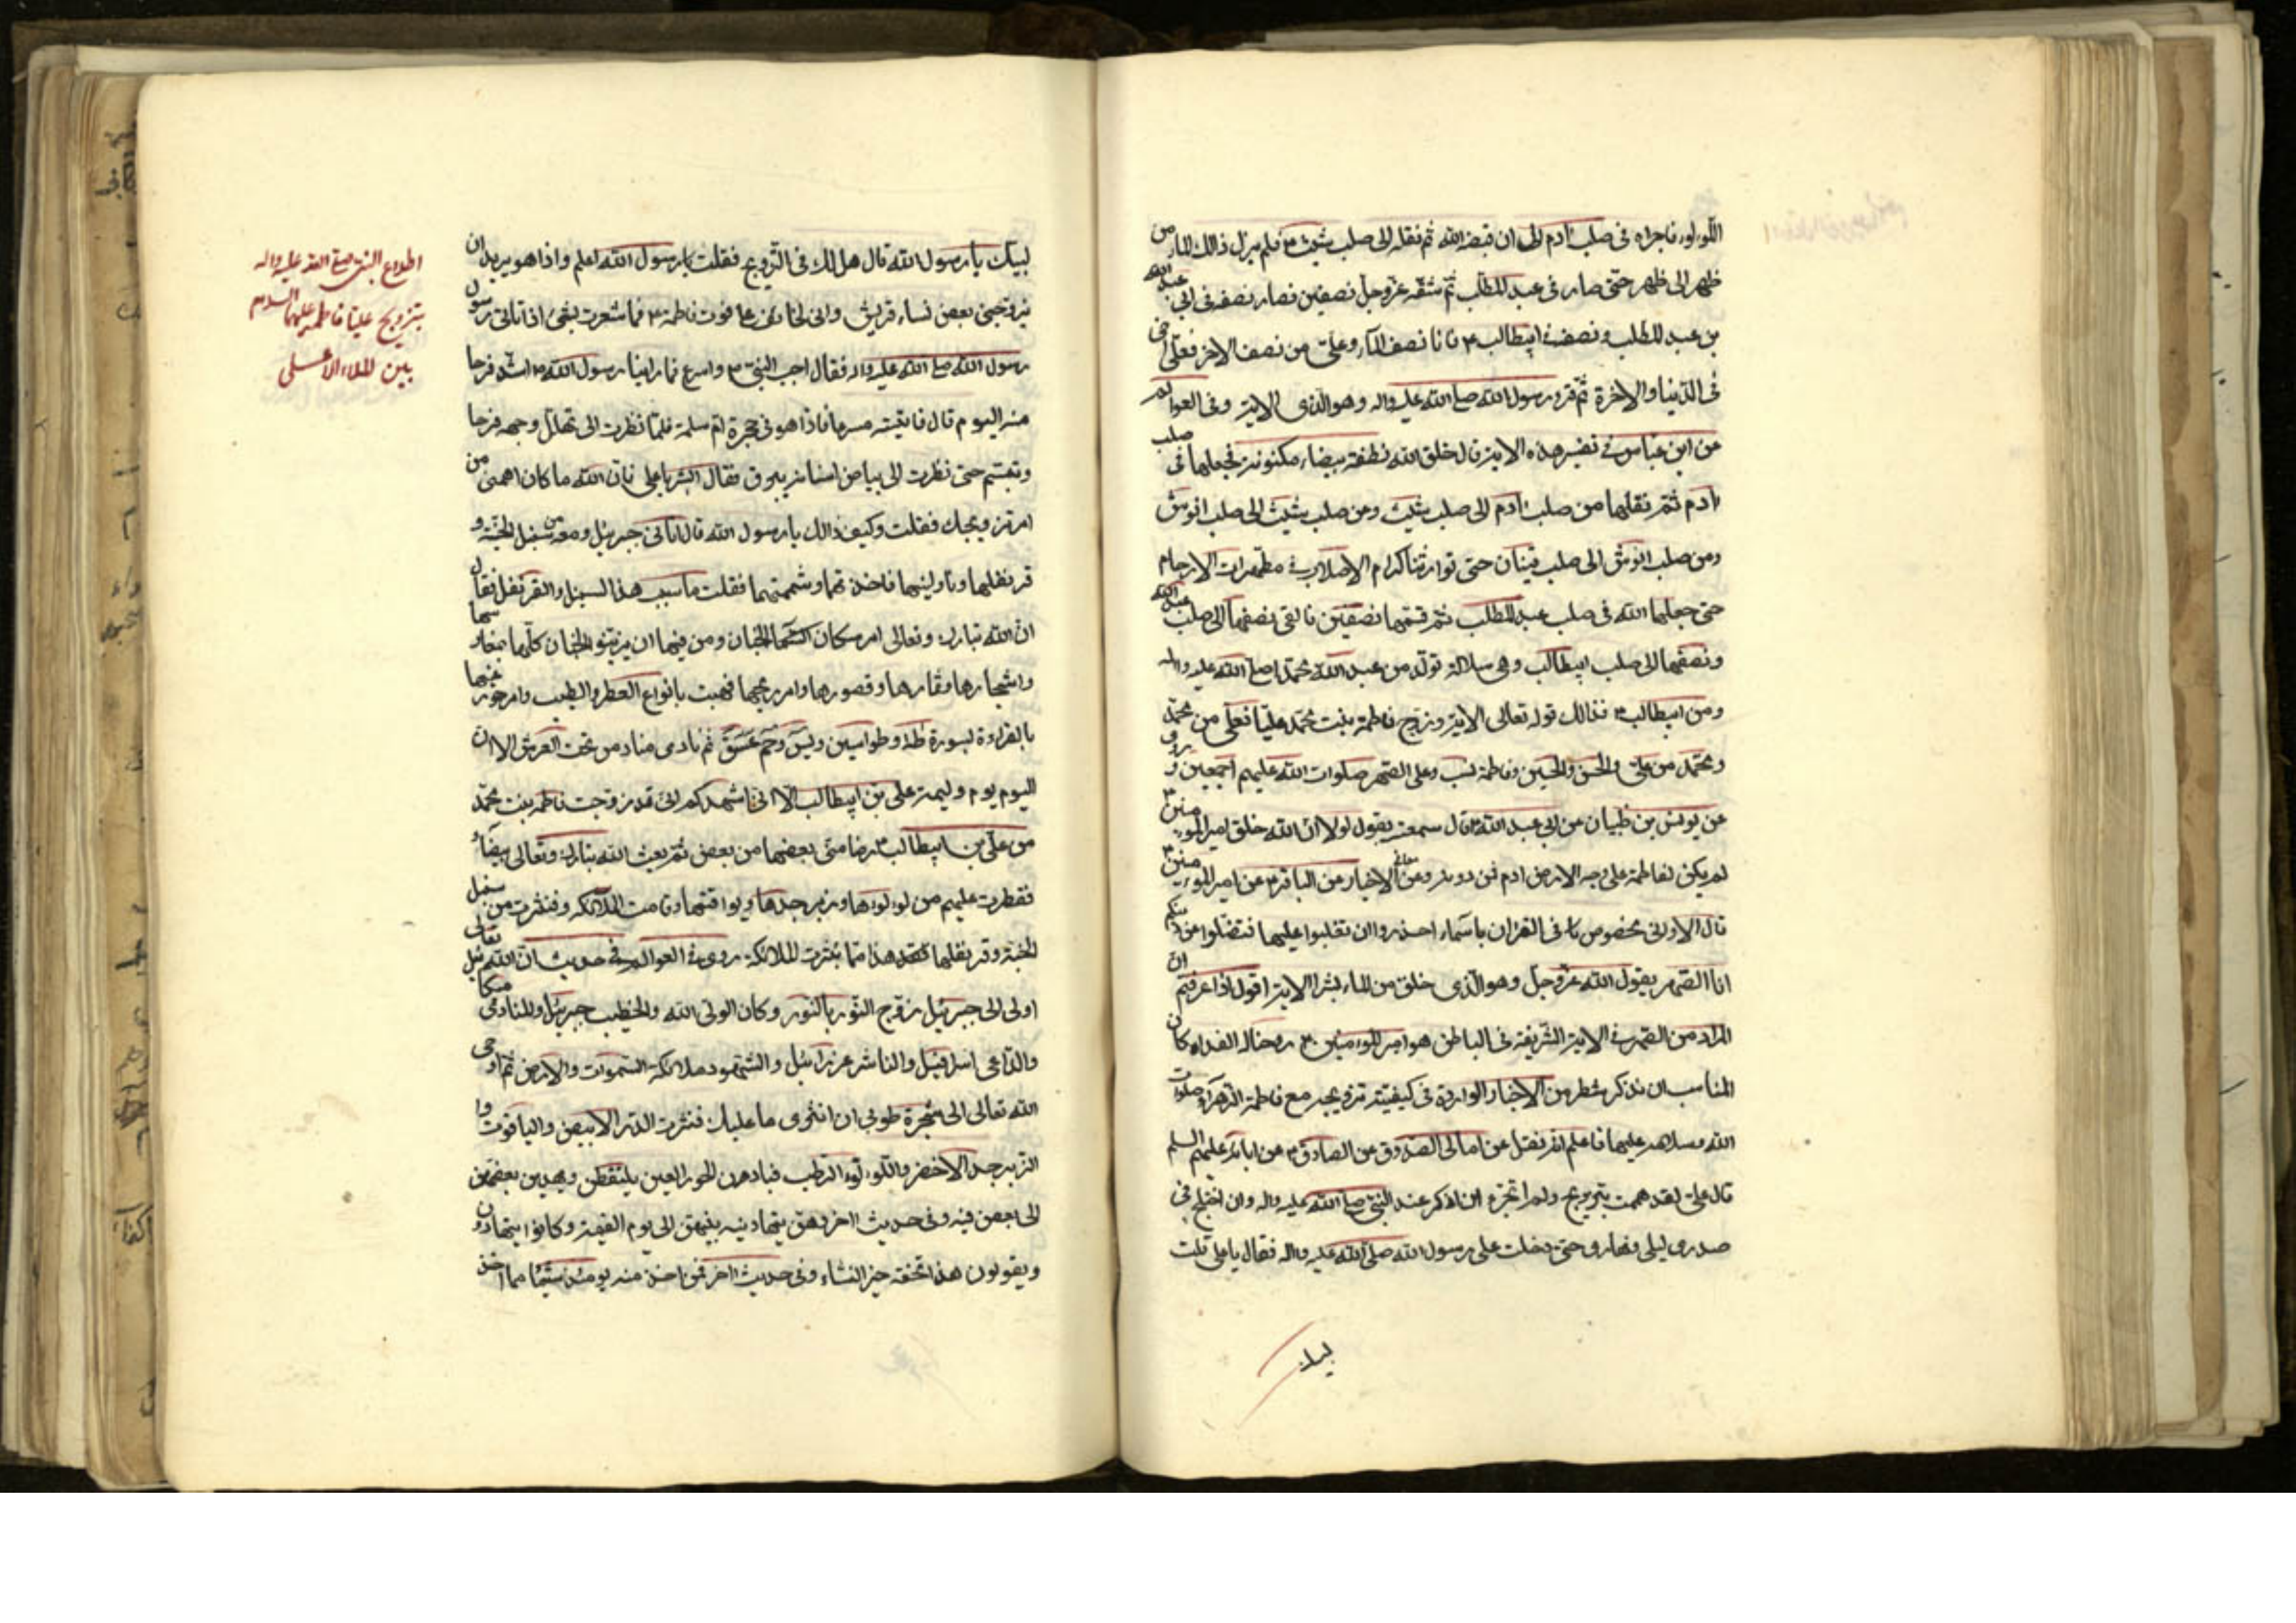 اللؤلؤ فاجراه فى صلب آدم الى ان قبضه الله ثم نقله الى صلب شيث ٤ فلم يزل ذالك الماء من
ظهر الى ظهر حتى صار فى عبد المطلب ثم شقه عز وجل نصفين فصار نصفه فى ابى عبد الله
بن عبد المطلب و نصف فى ابيطالب ٤ فانا نصف الماء وعلى من نصف الاخر فعلى اخى
فى الدنيا والاخرة ثم قرء رسول الله صلى الله عليه واله وهو الذى الاية وفى العوالم
عن ابن عباس فى تفسير هذه الاية قال خلق الله نطفة بيضاء مكنونة فجعلها فى صلب
آدم ثم نقلها من صلب آدم الى صلب شيث ومن صلب شيث الى صلب انوش
ومن صلب انوش الى صلب قينان حتى توارثتها كرام الاصلاب فى مطهرات الارحام
حتى جعلها الله فى صلب عبد المطلب ثم قسمها نصفين فالقى نصفها الى صلب عبد الله
ونصفها الى صلب ابيطالب وهى سلالة تولد من عبد الله محمد صلى الله عليه واله
ومن ابيطالب ٤ فذالك قوله تعالى الاية وزوج فاطمة بنت محمد عليا فعلى من محمد
ومحمد من على والحسن والحسين وفاطمة نسب وعلى الصهر صلوات الله عليهم اجمعين وروى
عن يونس بن ظبيان عن ابى عبد الله ٤ قال سمعته يقول لولا ان الله خلق امير المؤمنين ٤
لم يكن لفاطمة على وجه الارض ادم فمن دونه وعن معانى الاخبار عن الباقر ٤ عن امير المؤمنين ٤
قال الا وانى مخصوص فى القران باسماء احذروا ان تغلبوا عليها فتضلوا عن دينكم
انا الصهر يقول الله عز وجل وهو الذى خلق من الماء بشرا الاية اقول اذا عرفتم ان
المراد من الصهر فى الاية الشريفة فى الباطن هو امير المؤمنين ٤ روحنا له الفداء كان
المناسب ان نذكر شطر من الاخبار الواردة فى كيفية تزويجه مع فاطمة الزهراء صلوات
الله وسلامه عليهما فاعلم انه نقل عن امالى الصدوق عن الصادق ٤ عن ابائه عليهم السلم
قال على لقد هممت بتزويج ولم اتجرء ان اذكر عند النبى صلى الله عليه واله وان اختلج فى
صدرى ليلى ونهارى حتى دخلت على رسول الله صلى الله عليه واله فقال يا على قلت
لبيك
لبيك يا رسول الله قال هل لك فى التزويج فقلت يا رسول الله اعلم واذا هو يريد ان
يزوجنى بعض نساء قريش وانى لخائف على فوت فاطمة ٤ فما شعرت بشئ اذ اتانى رسول
رسول الله صلى الله عليه واله فقال اجب النبى ٤ واسرع فما راينا رسول الله ٤ اشد فرحا
منه اليوم قال فاتيته مسرعا فاذا هو فى حجرة ام سلمة فلما نظرت الى تهلل وجهه فرحا
وتبسم حتى نظرت الى بياض اسنانه يبرق فقال ابشر يا على فان الله ما كان اهمنى من
امر تزويجك فقلت وكيف ذالك يا رسول الله قال اتانى جبرئيل ومعه من سنبل الجنة و
قرنفلها وناولنيها فاخذتها وشممتهما فقلت ما سبب هذا السنبل والقرنفل فقال
ان الله تبارك وتعالى امر سكان الجنان ومن فيها ان يزينوا الجنان كلها بمغارسها
واشجارها وثمارها وقصورها وامر ريحها فهبت بانواع العطر والطيب وامر حور عينها
بالقراءة بسورة طه وطواسين ويس وحم عسق ثم نادى مناد من تحت العرش الا ان
اليوم يوم وليمة على بن ابيطالب الا انى اشهدكم انى قد زوجت فاطمة بنت محمد
من على بن ابيطالب ٤ رضا منى بعضها من بعض ثم بعث الله تبارك وتعالى بيضاء
فقطرت عليهم من لؤلؤها وزبرجدها ويواقيتها وقامت الملائكة فنثرت من سنبل
الجنة وقرنفلها هذا مما نثرت الملائكة روى فى العوالم فى حديث ان الله تعالى
اوحى الى جبرئيل زوج النور بالنور وكان الولى الله والخطيب جبرئيل والمنادى ميكائيل
والداعى اسرافيل والناشر عزرائيل والشهود ملائكة السموات والارض ثم اوحى
الله تعالى الى شجرة طوبى ان انثرى ما عليك فنثرت الدر الابيض والياقوت وا
الزبرجد الاخضر واللؤلؤ الرطب فبادرن الحور العين يلتقطن ويهدين بعضهن
الى بعض فيه وفى حديث اخر فهن يتهادينه بينهن الى يوم القيمة وكانوا يتهادون
ويقولون هذا تحفة خير النساء وفى حديث اخر فمن اخذ منه يومئذ شيئا مما اخذ
اطلاع النبى صلى الله عليه واله
بتزويج عليا فاطمة عليهما السلام
بين الملاء الاعلى